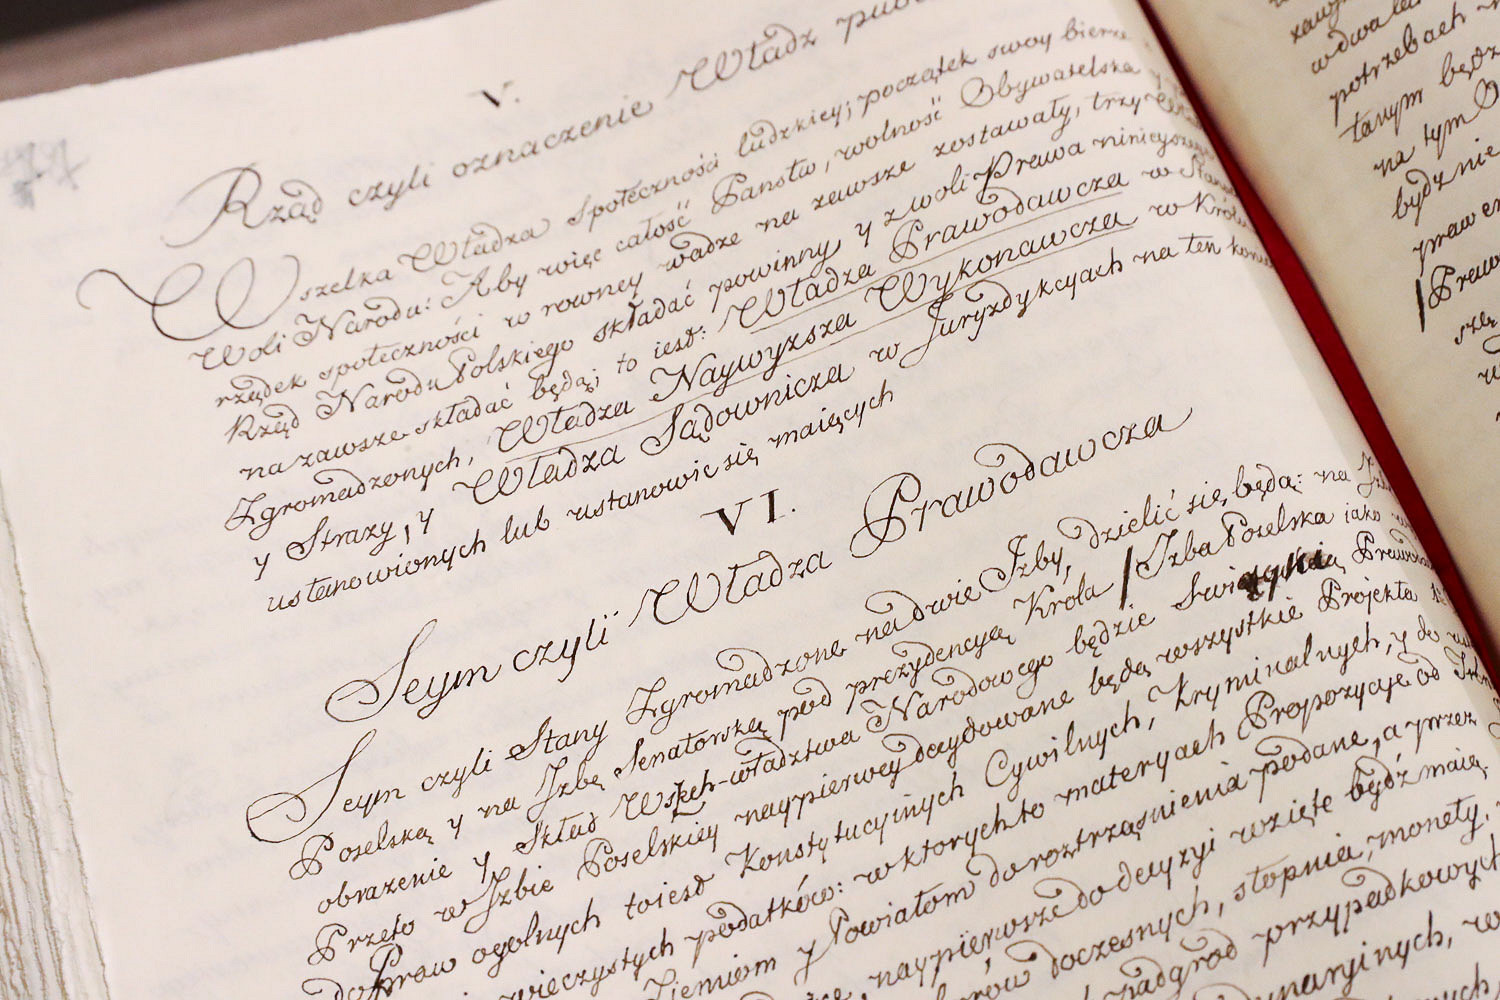 V.
Rząd czyli oznaczenie Władz
Wszelka Władza społeczności ludzkiey; początek swoy bierze
Woli Narodu: Aby więc całość Państw, wolność Obywatelska y
rządek społeczności w rowney wadze na zawsze zostawały, trzy
Rząd Narodu Polskiego składać powinny y z woli Prawa ninieyszego
na zawsze składać będą; to iest: Władza Prawodawcza w
Zgromadzonych, Władza Naywyższa Wykonawcza w
y Straży, y Władza Sądownicza w Juryzdykcyach na ten
ustanowionych lub ustanowić się maiących
VI.
Seym czyli Władza Prawodawcza
Seym czyli Stany Zgromadzone na dwie Izby, dzielić się będą: na
Poselską y na Izbę Senatorską pod prezydencyą Króla / Izba Poselska iako
obrazenie y skład Wszech-władztwa Narodowego będzie Swiątynią
Przeto w Izbie Poselskiey naypierwey decydowane będą wszystkie Projekta
do Praw ogolnych toiest Konstytucyinych Cywilnych, kryminalnych, y do
wieczystych podatków: w ktorych to materyach Propozycye od
Ziemiom y Powiatom do roztrząsnienia podane, a przez
naypierwsze do decyzyi wzięte bydź maią.
doczesnych, stopnia, monety,
nadgrod przypadkowych
w
w dwa
potrzebach
tanym będz
na tym
bydz nie
praw
/ Praw